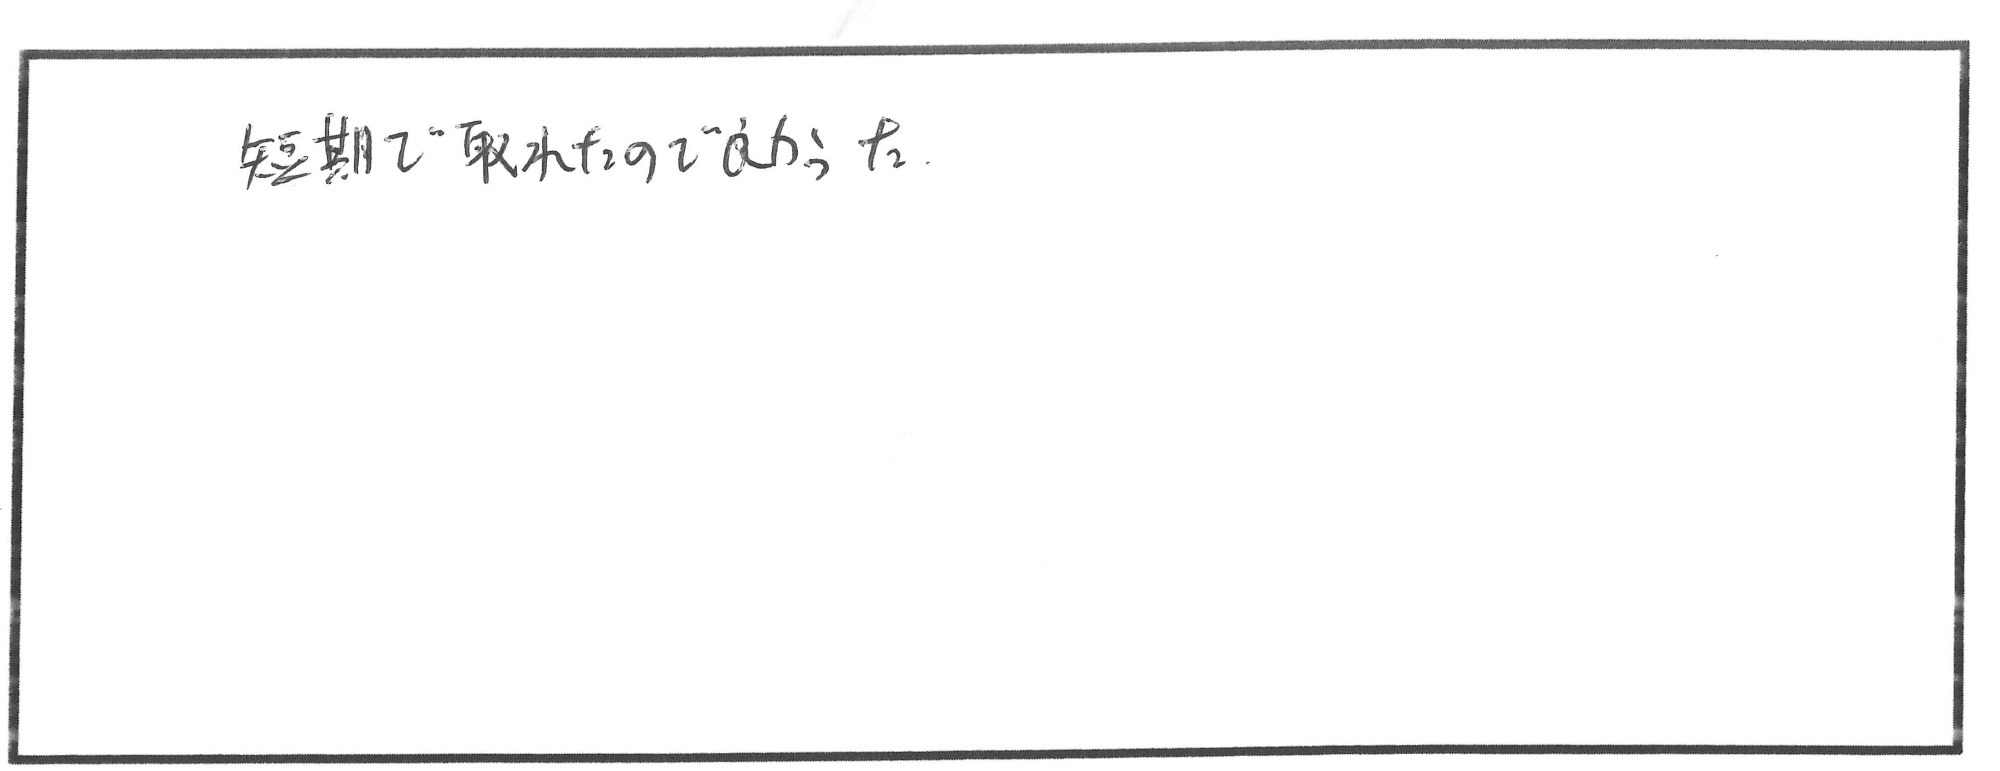 短期で取れたので良かった.